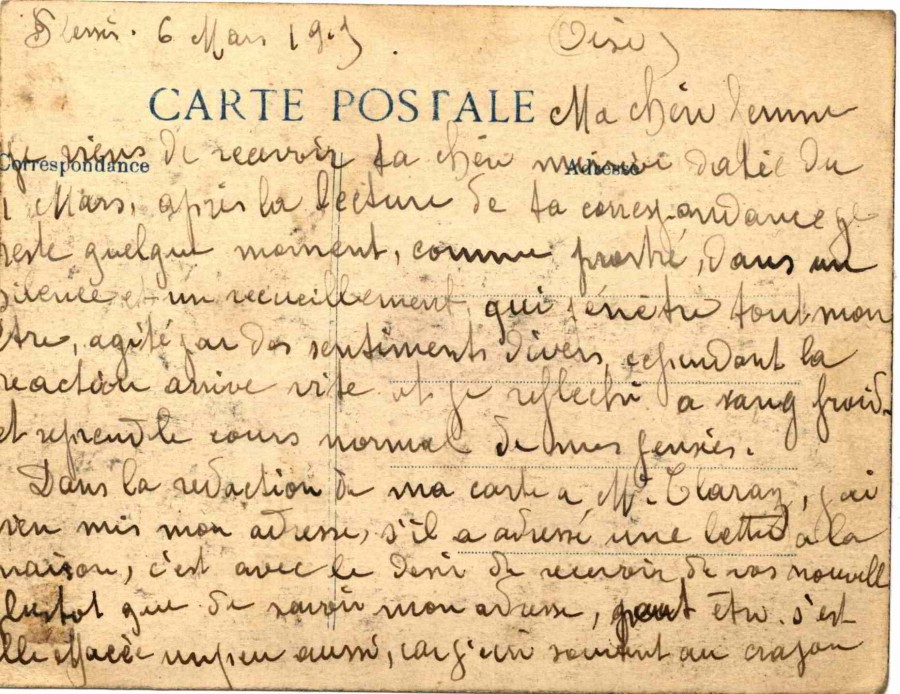 Plessis. 6 Mars 1915. (Oise)
CARTE POSTALE Ma chère femme
Correspondance Adresse
Je viens de recevoir ta chère missive datée du
1 Mars, après la lecture de ta correspandance je
reste quelque moment, comme prostré, dans un
silence et un recueillement qui pénètre tout mon
être, agité par des sentiments divers, cependant la
reaction arrive vite et je reflechi a sang froid
et reprend le cours normal de mes pensées.
Dans la redaction de ma carte a Mr. Claraz, j'ai
bien mis mon adresse, s'il a adressé une lettre a la
maison, c'est avec le desir de recevoir de vos nouvell
plustot que de savoir mon adresse, peut être s'est
elle effacée un peu aussi, car j'ecri souvent au crayon